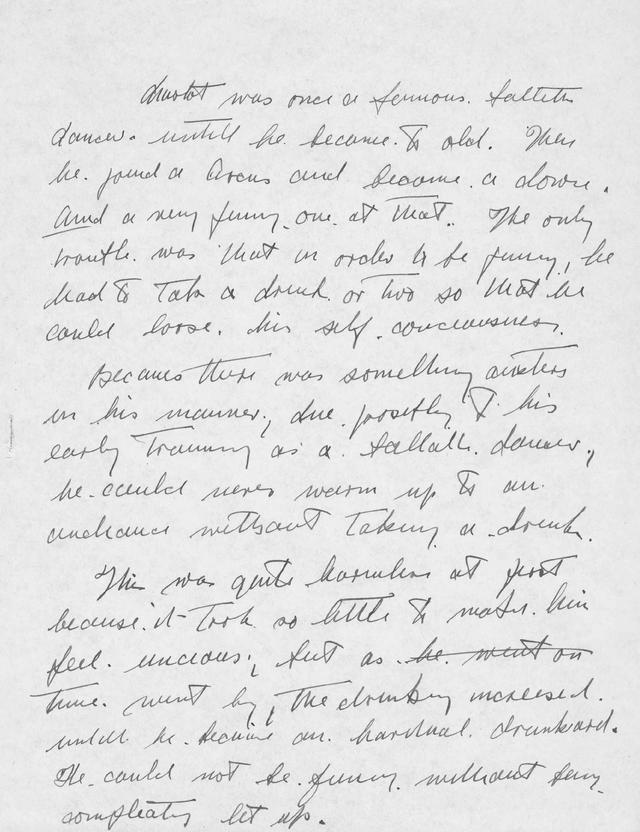 was once a famous. ballett
dancer. untill he. became. to old. Then
he. joind a Circus and became. a clown.
And a very funny. one. at that. The only
trouble. was that in order to be funny, he
had to take a drink. or two so that he
could loose. his self. conciousness.
Becaues there was something austere
in his manner, due. possibly to his
early training as a. ballath. dancer,
he. could never warm up to an.
audiance without taking a drink.
This was quite harmless at first
because. it took so little to make. him
feel. but as. he. went on
time. went by, the drinking increesed.
untill he. became an. habitual. drunkard.
He. could not be. funny. without being
compleatly let up.